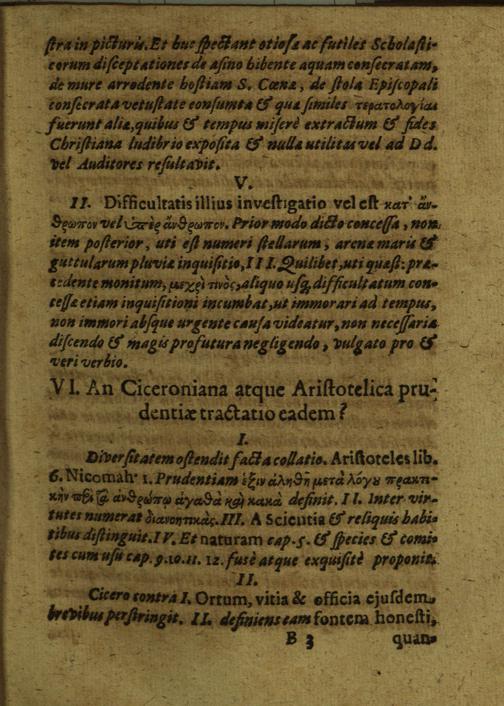 ſtra in picturis. Et huc ſpectant otioſæ ac futiles Scholaſti-
corum diſceptationes de aſino bibente aquam conſecratam,
de mure arrodente hoſtiam S. Cœnæ, de ſtola Epiſcopali
conſecrata vetuſtate conſumta & quæ ſimiles τερατολογίαι
fuerunt aliæ, quibus & tempus miſerè extractum & fides
Chriſtiana ludibrio expoſita & nulla utilitas vel ad Dd.
vel Auditores reſultavit.
V.
II. Difficultatis illius inveſtigatio vel eſt κατ' ἄν-
θρωπον vel ὑπὲρ ἄνθρωπον. Prior modo dicto conceſſa, non
item poſterior, uti eſt numeri ſtellarum, arenæ maris &
guttularum pluviæ inquiſitio, III. Quilibet, uti quæſt: præ-
cedente monitum, μεχρὶ τινὸς, aliquo uſq; difficultatum con-
ceſſæ etiam inquiſitioni incumbat, ut immorari ad tempus,
non immori abſque urgente cauſa videatur, non neceſſaria
diſcendo & magis profutura negligendo, vulgato pro &
veri verbio.
VI. An Ciceroniana atque Ariſtotelica pru-
dentiæ tractatio eadem?
I.
Diverſitatem oſtendit facta collatio. Ariſtoteles lib.
6. Nicomah: 1. Prudentiam ἕξιν ἀληθῆ μετὰ λόγου πρακτι-
κὴν περὶ τὰ ἀνθρώπῳ ἀγαθὰ καὶ κακὰ definit. II. Inter vir-
tutes numerat διανοητικάς. III. A Scientia & reliquis habi-
tibus diſtinguit. IV. Et naturam cap. 5. & ſpecies & comi-
tes cum uſu cap. 9. 10. 11. 12. fuſè atque exquiſitè proponit.
II.
Cicero contra I. Ortum, vitia & officia ejuſdem
brevibus perſtringit. II. definiens eam fontem honeſti,
B 3 quan-